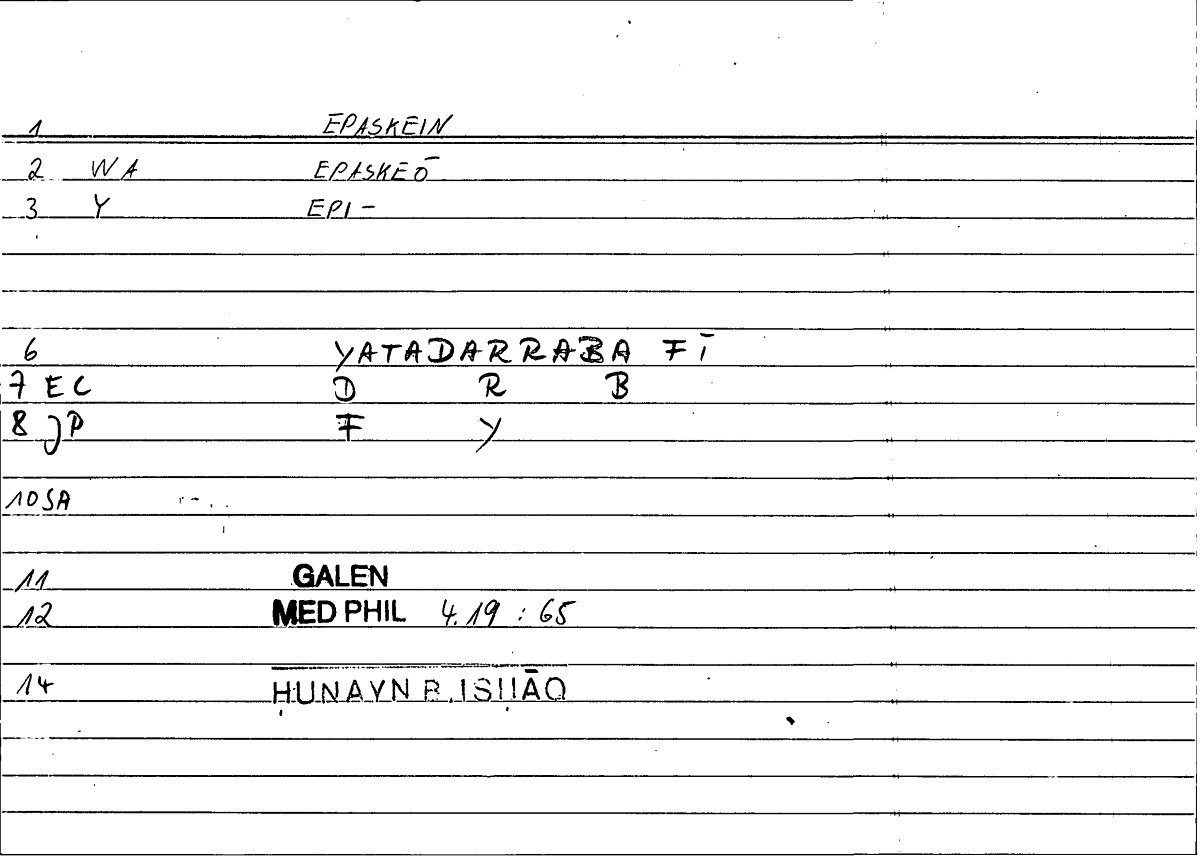 1 EPASKEIN
2 WA EPASKEŌ
3 Y EPI-
6 YATADARRABA FĪ
7 EC D R B
8 JP F Y
10 SA
11 GALEN
12 MED PHIL 4.19 : 65
14 ḤUNAYN B. ISḤĀQ